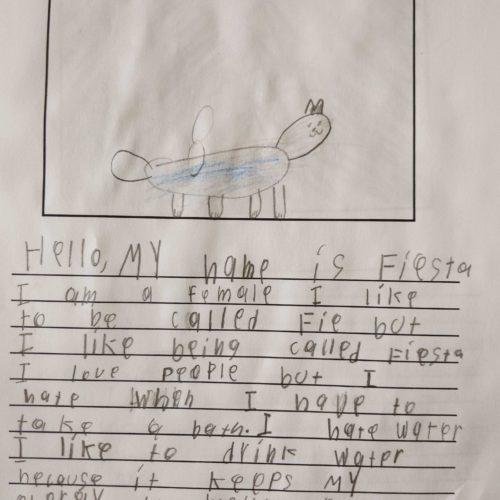 Hello, MY name is Fiesta
I am a Female I like
to be called Fie but
I like being called Fiesta
I love people but I
hate when I have to
take a bath. I hate water
I like to drink water
because it keeps MY